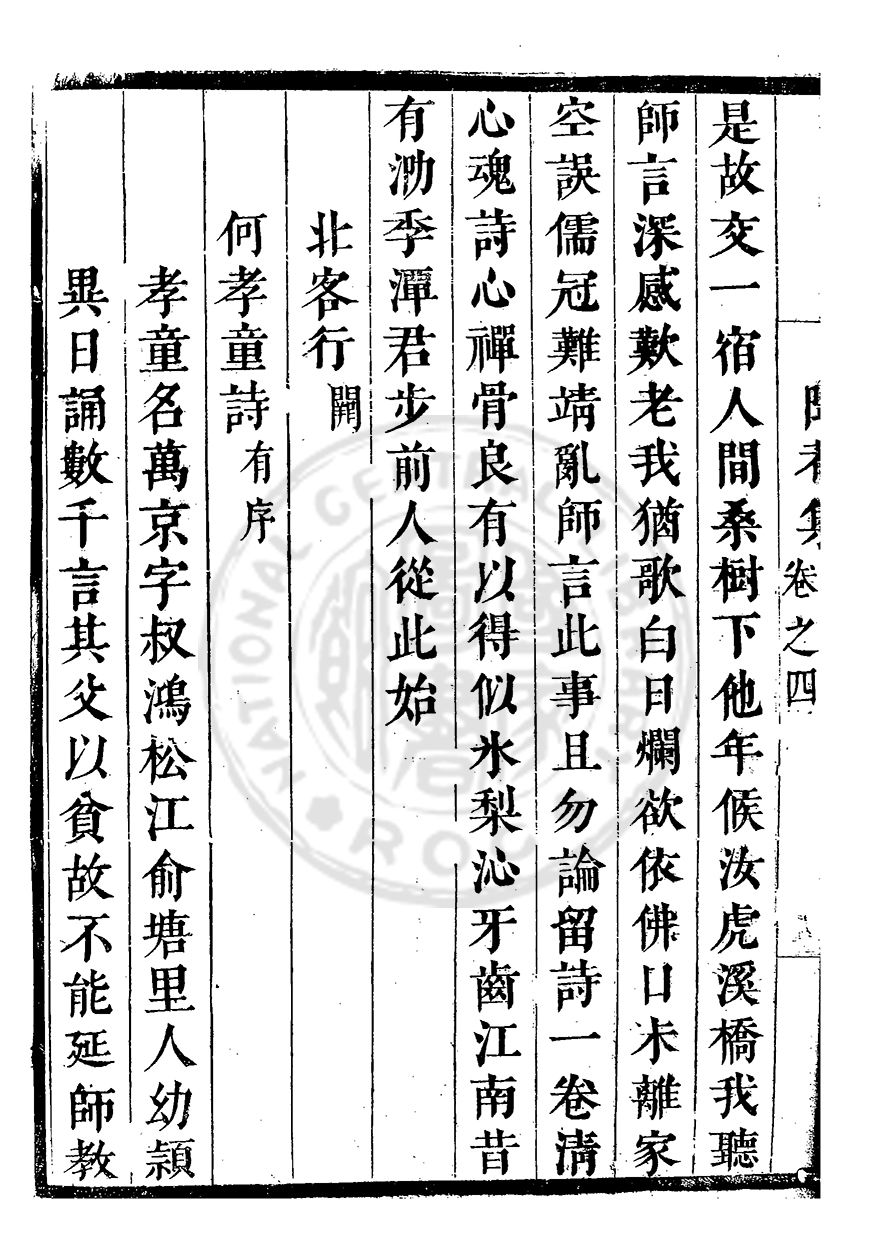 者集 卷之四
是故交一宿人間桑樹下他年候汝虎溪橋我聽
師言深感歎老我猶歌白日爛欲依佛日未離家
空誤儒冠難靖亂師言此事且勿論留詩一卷清
心魂詩心禪骨良有以得似氷梨沁牙齒江南昔
有泐季潭君步前人從此始
北客行
何孝童詩 有序
孝童名萬京字叔鴻松江俞塘里人幼穎
異日誦數千言其父以貧故不能延師教
NATIONAL CENTRAL LIBRARY